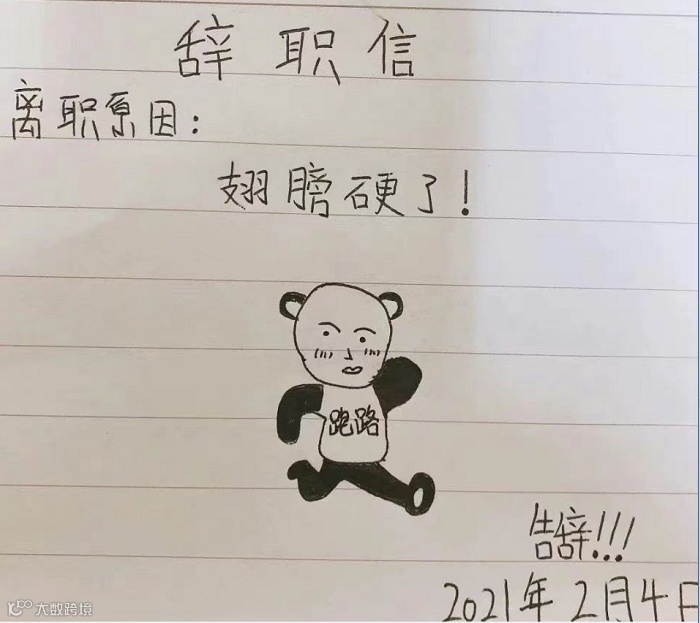 辞职信
离职原因:
翅膀硬了!
跑路
告辞!!!
2021年2月4日
大数跨境